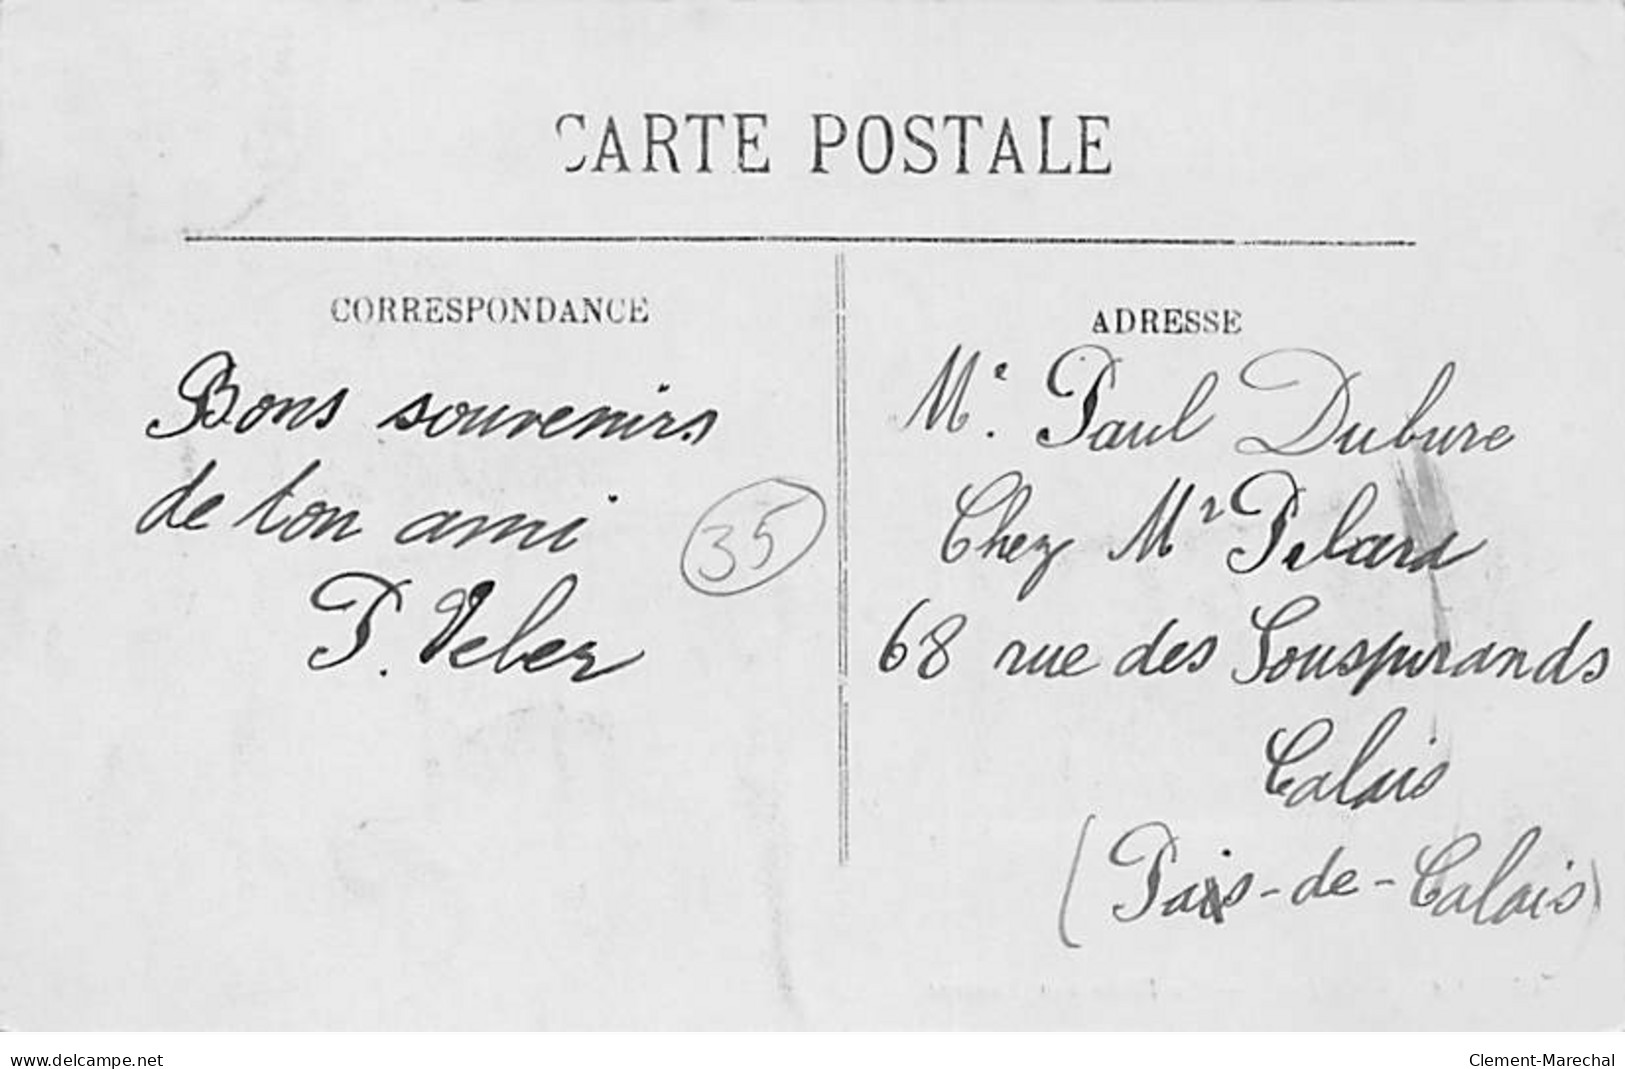 CARTE POSTALE
CORRESPONDANCE
Bons souvenirs
de ton ami
P. Veber
35
ADRESSE
Mr. Paul Dubure
Chez Mr Pilard
68 rue des Souspirands
Calais
(Pais-de-Calais)
www.delcampe.net
Clement-Marechal